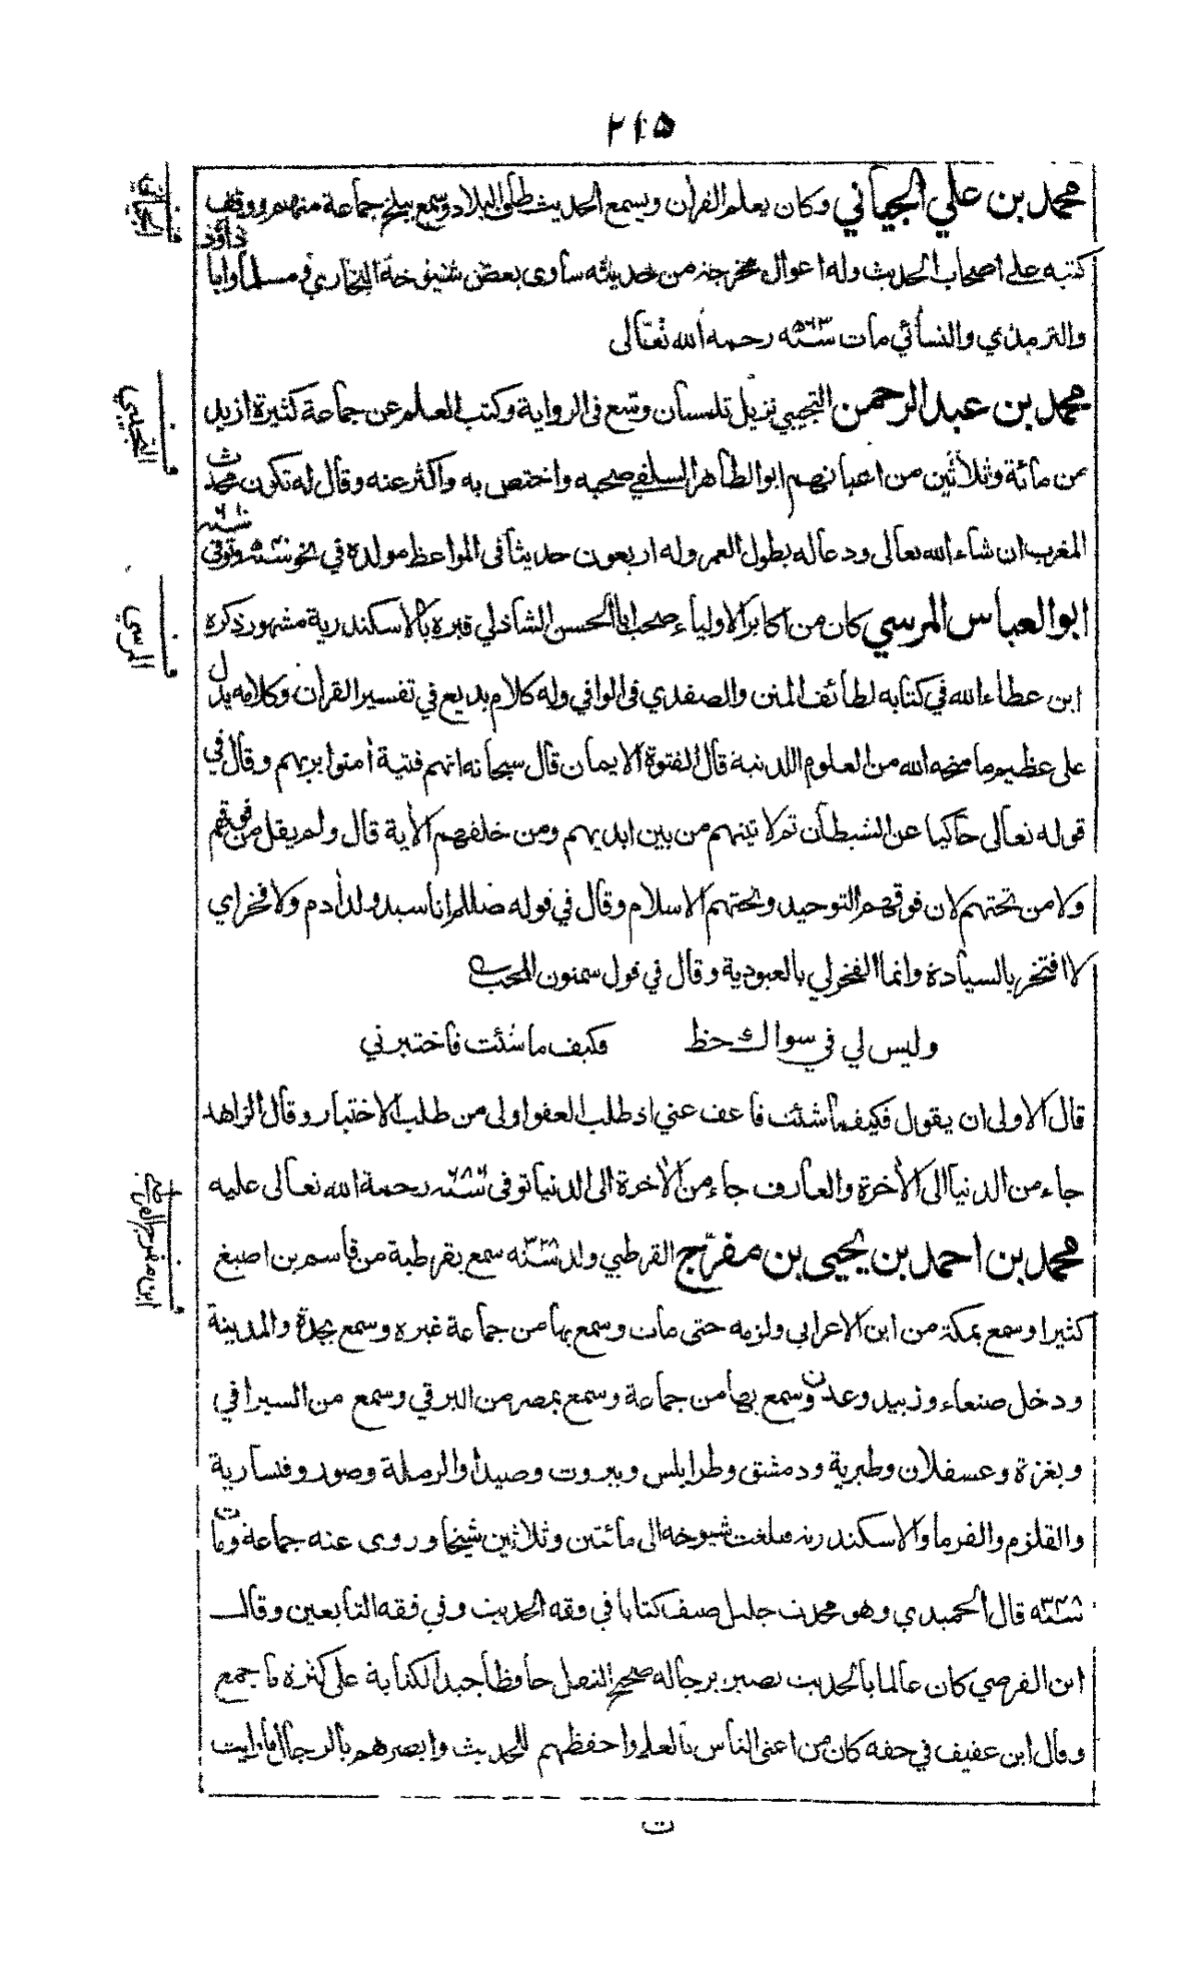 ٢١٥
محمد بن علي الجياني وكان يعلم القرآن ويسمع الحديث طلق البلاد وسمع ببلخ جماعة منهم ووقف
كتبه على اصحاب الحديث وله اعوال مخرجة من حديثه ساوى بعض شيوخه البخاري ومسلما وابا داؤد
والترمذي والنسائي مات سنة ٥٦٣ رحمه الله تعالى
محمد بن عبد الرحمن التجيبي نزيل تلمسان وسع في الرواية وكتب العلم عن جماعة كثيرة ازيد
من مائة وثلاثين من اعيانهم ابو الطاهر السلفي صحبه واختص به واكثر عنه وقال له تكون محدث
المغرب ان شاء الله تعالى ودعا له بطول العمر وله اربعون حديثا في المواعظ مولده في نحو سنة وتوفي سنة ٦١٠
ابو العباس المرسي كان من اكابر الاولياء صحب ابا الحسن الشاذلي قبره بالاسكندرية مشهور ذكره
ابن عطاء الله في كتابه لطائف المنن والصفدي في الوافي وله كلام بديع في تفسير القرآن وكلامه يدل
على عظيم ما منحه الله من العلوم اللدنية قال الفتوة الايمان قال سبحانه انهم فتية آمنوا بربهم وقال في
قوله تعالى حاكيا عن الشيطان ثم لآتينهم من بين ايديهم ومن خلفهم الآية قال ولم يقل من فوقهم
ولا من تحتهم لان فوقهم التوحيد وتحتهم الاسلام وقال في قوله صللم انا سيد ولد آدم ولا فخر اي
لا افتخر بالسيادة وانما الفخر لي بالعبودية وقال في قول سمنون المحب
وليس لي في سواك حظ فكيف ما شئت فاختبرني
قال الاولى ان يقول فكيف ما شئت فاعف عني اذ طلب العفو اولى من طلب الاختبار وقال الزاهد
جاء من الدنيا الى الآخرة والعارف جاء من الآخرة الى الدنيا توفى سنة ٦٨٦ رحمة الله تعالى عليه
محمد بن احمد بن يحيى بن مفرّج القرطبي ولد سنة ٣٣٨ سمع بقرطبة من قاسم بن اصبغ
كثيرا وسمع بمكة من ابن الاعرابي ولزمه حتى مات وسمع بها من جماعة غيره وسمع بجدة والمدينة
ودخل صنعاء وزبيد وعدن وسمع بها من جماعة وسمع بمصر من البرقي وسمع من السيرافي
وبغزة وعسقلان وطبرية ودمشق وطرابلس وبيروت وصيدا والرملة وصور وقيسارية
والقلزم والفرما والاسكندرية فبلغت شيوخه الى مائتين وثلاثين شيخا وروى عنه جماعة ومات
سنة ٣٤٨ قال الحميدي وهو محدث جليل صنف كتابا في فقه الحديث وفي فقه التابعين وقال
ابن الفرضي كان عالما بالحديث بصير برجاله صحيح النقل حافظا جيد الكتابة على كثرة ما جمع
وقال ابن عفيف في حقه كان من اعنى الناس بالعلم واحفظهم للحديث وابصرهم بالرجال ما رايت
ت
ف الجياني
ف التجيبي
ف المرسي
ف ابن مفرج